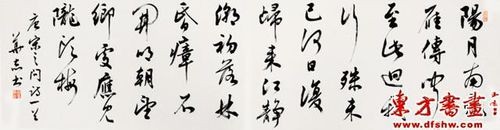 陽月南飛
雁傳聞
至此迴我
行殊未
已何日復
歸來江靜
潮初落林
昏瘴不
開明朝望
鄉處應見
隴頭梅
唐宋之問詩一首
東方書畫
www.dfshw.com